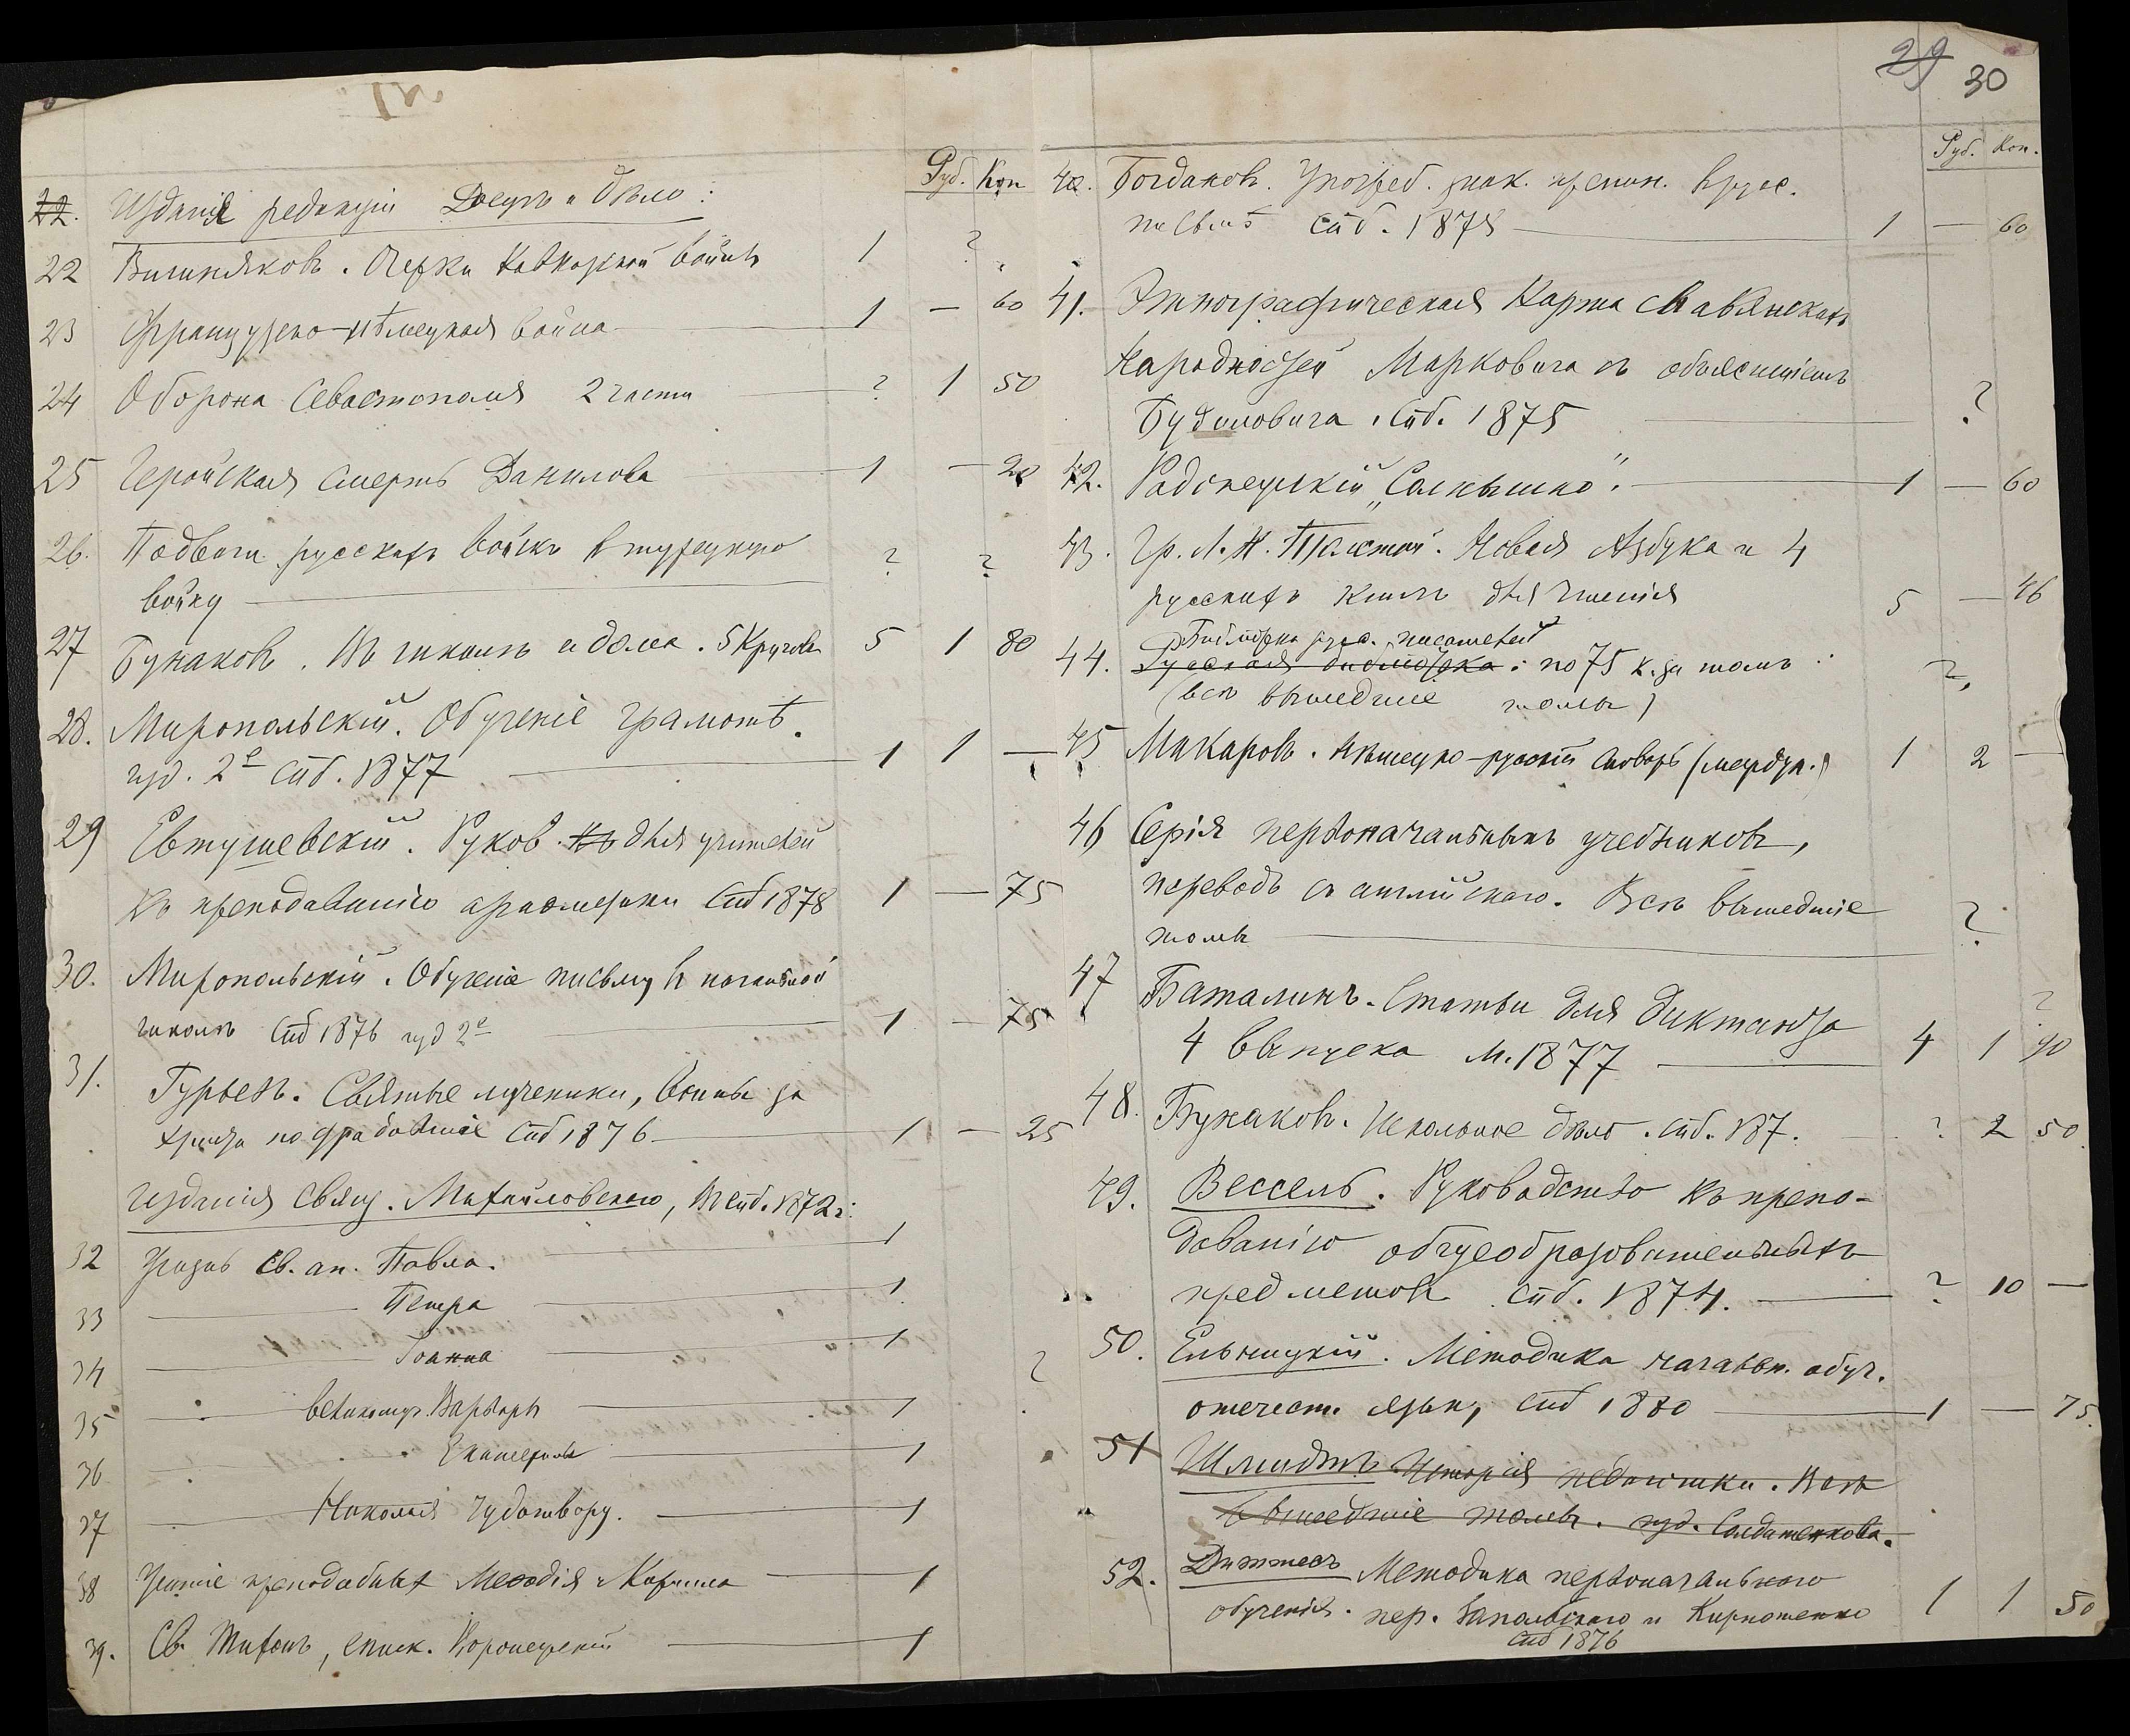 29 30
Руб. Коп
22. Изданія редакціи Досугъ и Дѣло:
22 Вишняковъ. Очерки Кавказской войны 1 ?
23 Французско-нѣмецкая война 1 — 60
24 Оборона Севастополя 2 части ? 1 50
25 Геройская смерть Данилова 1 — 20
26. Подвиги русскихъ войскъ в турецкую ? ?
войну
27 Бунаковъ. Въ школѣ и дома. 5 5 1 80
28. Миропольскій. Обученіе грамотѣ.
изд. 2е Спб. 1877 1 1 —
29 Евтушевскій. Руков. къ для учителей
къ преподаванію ариѳметики Спб 1878 1 — 75
30. Миропольскій. Обученіе письму в начальной
школѣ Спб 1876 изд 2е 1 — 75
31. Гурьевъ. Святые мученики, воины за
Христа пострадавшіе Спб 1876 1 — 25
Изданія Свящ. Михайловскаго, Спб. 1872 г:
32 Жизнь Св. ап. Павла. 1
33 — Петра 1
34 — Іоанна 1 ?
35 — великомуч. Варвары 1
36 — Екатерины 1
37 — Николая Чудотвору. 1
38 Житіе преподобныхъ Меѳодія и Кирилла 1
39. Св. Тихонъ, еписк. Воронежскій 1
Руб. Коп.
40. Богдановъ. Употреб. знак. препин. в рус.
письмѣ Спб. 1878 1 — 60
41. Этнографическая Карта Славянскихъ
Народностей Мирковича съ объясненіемъ
Будиловича. Спб. 1875 ?
42. Радонежскій „Солнышко". 1 — 60
43. Гр. Л. Н. Толстой. Новая Азбука и 4
русскихъ книги для чтенія 5 — 46
Библіотека рус. писателей
44. Русская библіотека: по 75 к. за томъ ?
(всѣ вышедшіе томы)
45 Макаровъ. Нѣмецко-русскій словарь 1 2 —
46 Серія первоначальныхъ учебниковъ,
переводъ съ англійскаго. Всѣ вышедшіе
томы ?
47 Баталинъ. Статьи для диктанта ?
4 выпуска М. 1877 4 1 90
48. Бунаковъ. Школьное дѣло. Спб. 187. ? 2 50
49. Вессель. Руководство къ препо-
даванію общеобразовательныхъ
предметовъ Спб. 1874. ? 10 —
50. Ельницкій. Методика начальн. обуч.
отечест. язык, Спб 1880 1 — 75.
51 Шмидтъ Исторія педагогики. Всѣ
вышедшіе томы. изд. Солдатенкова.
52. Диттесъ Методика первоначальнаго
обученія. пер. Запольскаго и Кирпотенко 1 1 50
Спб 1876